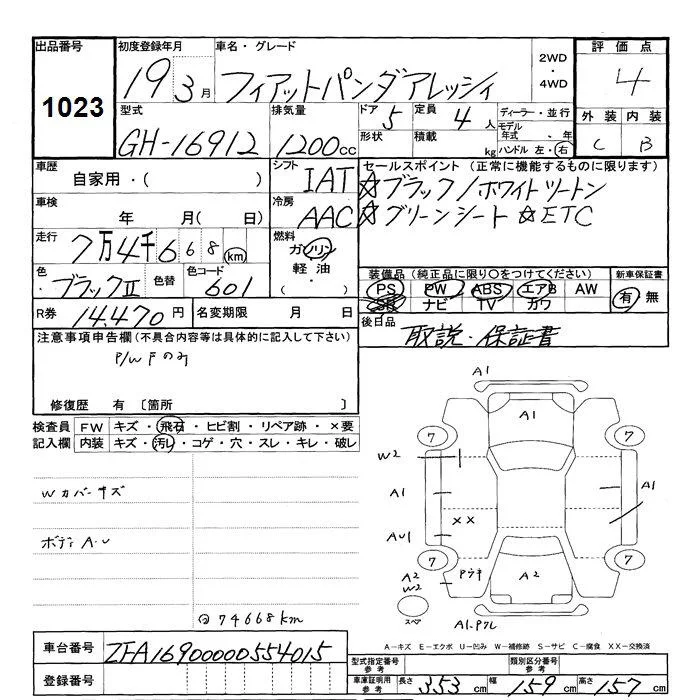 出品番号 初度登録年月 車名・グレード 2WD・4WD 評価点
1023 19 3月 フィアットパンダアレッシィ 4
型式 排気量 ドア 5 定員 4人 ディーラー・並行 外装 内装
GH-16912 1200cc 形状 積載 kg モデル年式 ・ 年 ハンドル 左・右 C B
車歴 シフト セールスポイント (正常に機能するものに限ります)
自家用・( ) IAT ☆ブラック/ホワイトツートン
車検 年 月(日) 冷房 AAC ☆グリーンシート ☆ETC
走行 7万4千668km 燃料 ガソリン
軽油・( )
色 ブラックII 色替 色コード 601 装備品 (純正品に限り○をつけてください) 新車保証書
PS PW ABS エアB AW 有・無
SR ナビ TV カワ
R券 14,470円 名変期限 月 日 後日品 取説・保証書
注意事項申告欄 (不具合内容等は具体的に記入して下さい)
P/W Fのみ
修復歴 有 〔箇所 〕
検査員 FW キズ・飛石・ヒビ割・リペア跡・×要
記入欄 内装 キズ・汚レ・コゲ・穴・スレ・キレ・破レ
Wカバーキズ
ボディA・U
@74668km
A1
A1
7 7
W2
A1 A1
XX
AU1
7 7
A2
W2
Pクキ
A2
スペア
A1.Pクレ
A-キズ E-エクボ U-凹み W-補修跡 S-サビ C-腐食 XX-交換済
車台番号 ZFA16900000554015
登録番号
型式指定番号 参考 類別区分番号 参考
車庫証明用 参考 長さ 353cm 幅 159cm 高さ 157cm